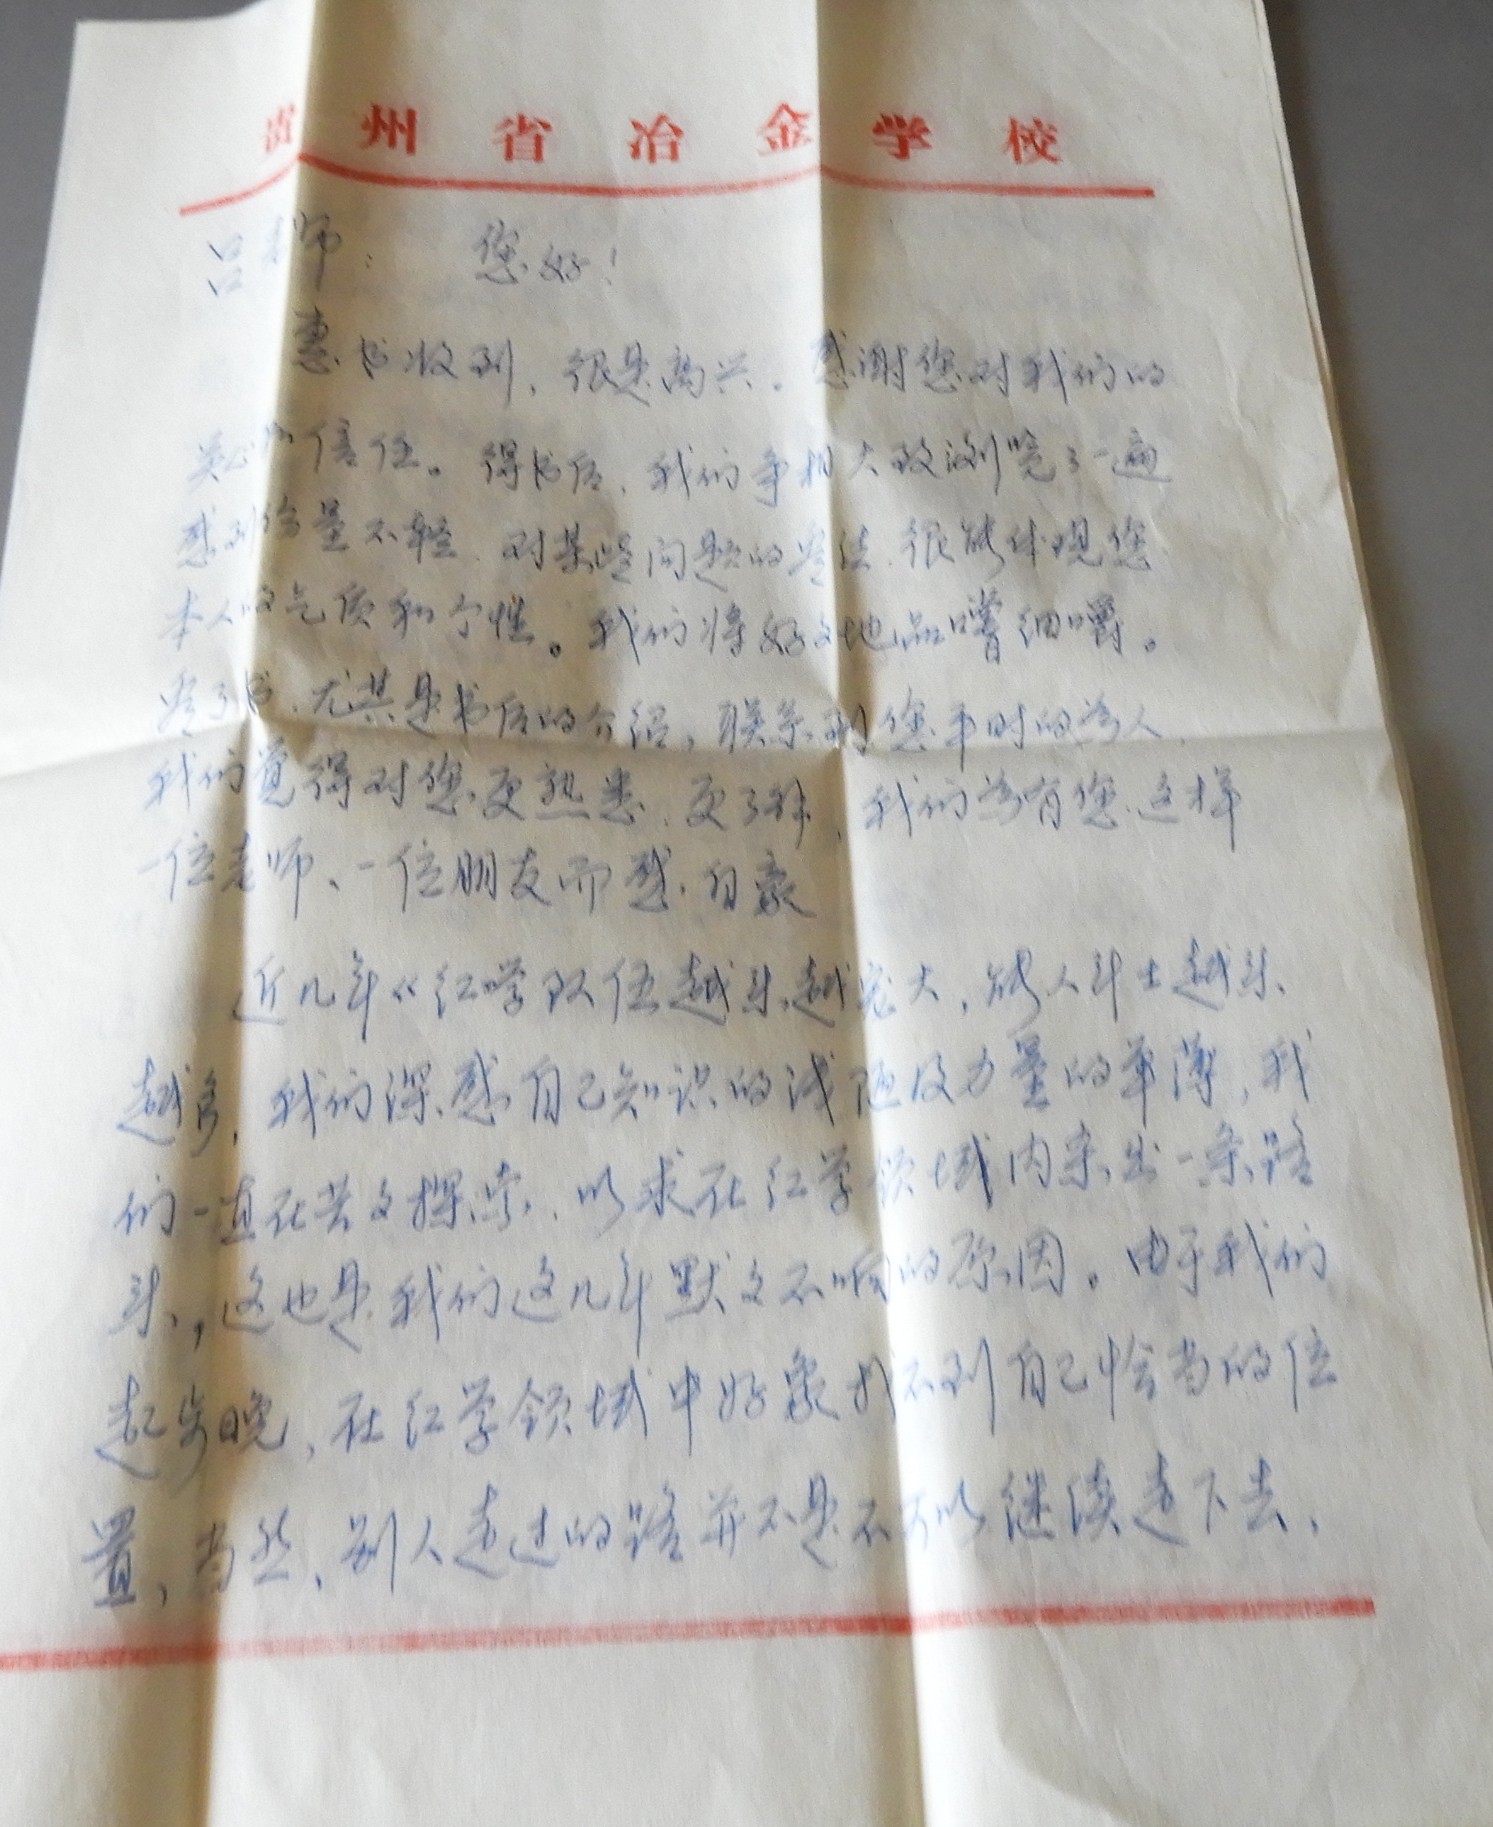 贵州省冶金学校
吕老师： 您好！
惠书收到，很是高兴。感谢您对我们的
关心和信任。得书后，我们争相大致浏览了一遍
感到份量不轻，对某些问题的看法，很能体现您
本人的气质和个性。我们将好好地品嚐细嚼。
看了书，尤其是书后的介绍，联系到您平时的为人，
我们觉得对您更熟悉，更了解，我们为有您这样
一位老师、一位朋友而感自豪
近几年红学队伍越来越庞大，能人斗士越来
越多，我们深感自己知识的浅陋及力量的单薄，我
们一直在苦苦探索，以求在红学领域内杀出一条路
来，这也是我们这几年默默不响的原因。由于我们
起步晚，在红学领域中好象找不到自己恰当的位
置，当然，别人走过的路并不是不可以继续走下去，